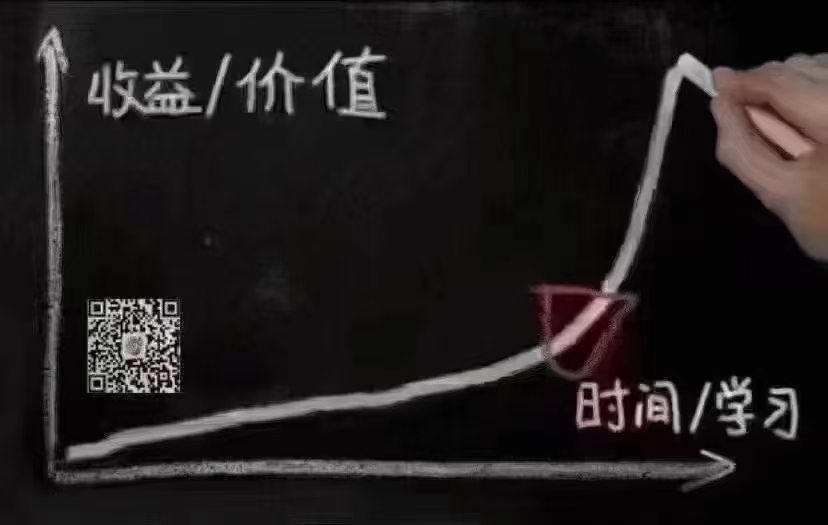 收益/价值
时间/学习